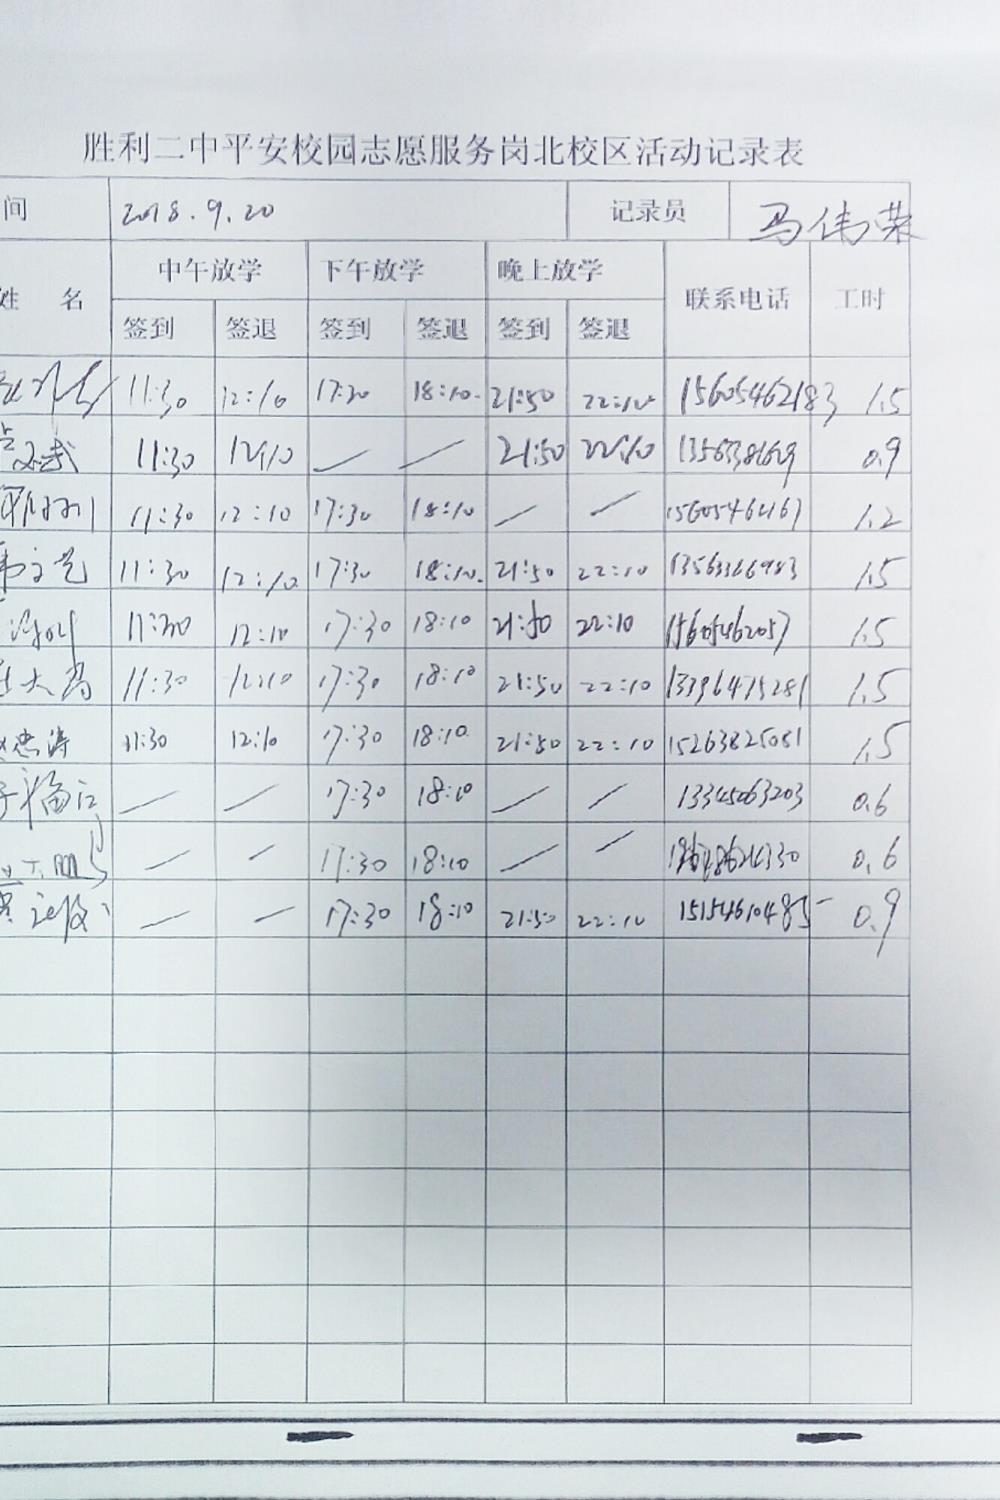 胜利二中平安校园志愿服务岗北校区活动记录表
间 2018.9.20 记录员 马伟荣
姓 名 中午放学 下午放学 晚上放学 联系电话 工时
签到 签退 签到 签退 签到 签退
11:30 12:10 17:30 18:10 21:50 22:10 15605462183 1.5
11:30 12:10 — — 21:50 22:10 0.9
11:30 12:10 17:30 18:10 — — 1.2
11:30 12:10 17:30 18:10 21:50 22:10 1.5
11:30 12:10 17:30 18:10 21:50 22:10 15605462057 1.5
11:30 12:10 17:30 18:10 21:50 22:10 13396475281 1.5
11:30 12:10 17:30 18:10 21:50 22:10 15263825081 1.5
— — 17:30 18:10 — — 13345063203 0.6
— — 17:30 18:10 — — 0.6
— — 17:30 18:10 21:50 22:10 15154610485 0.9